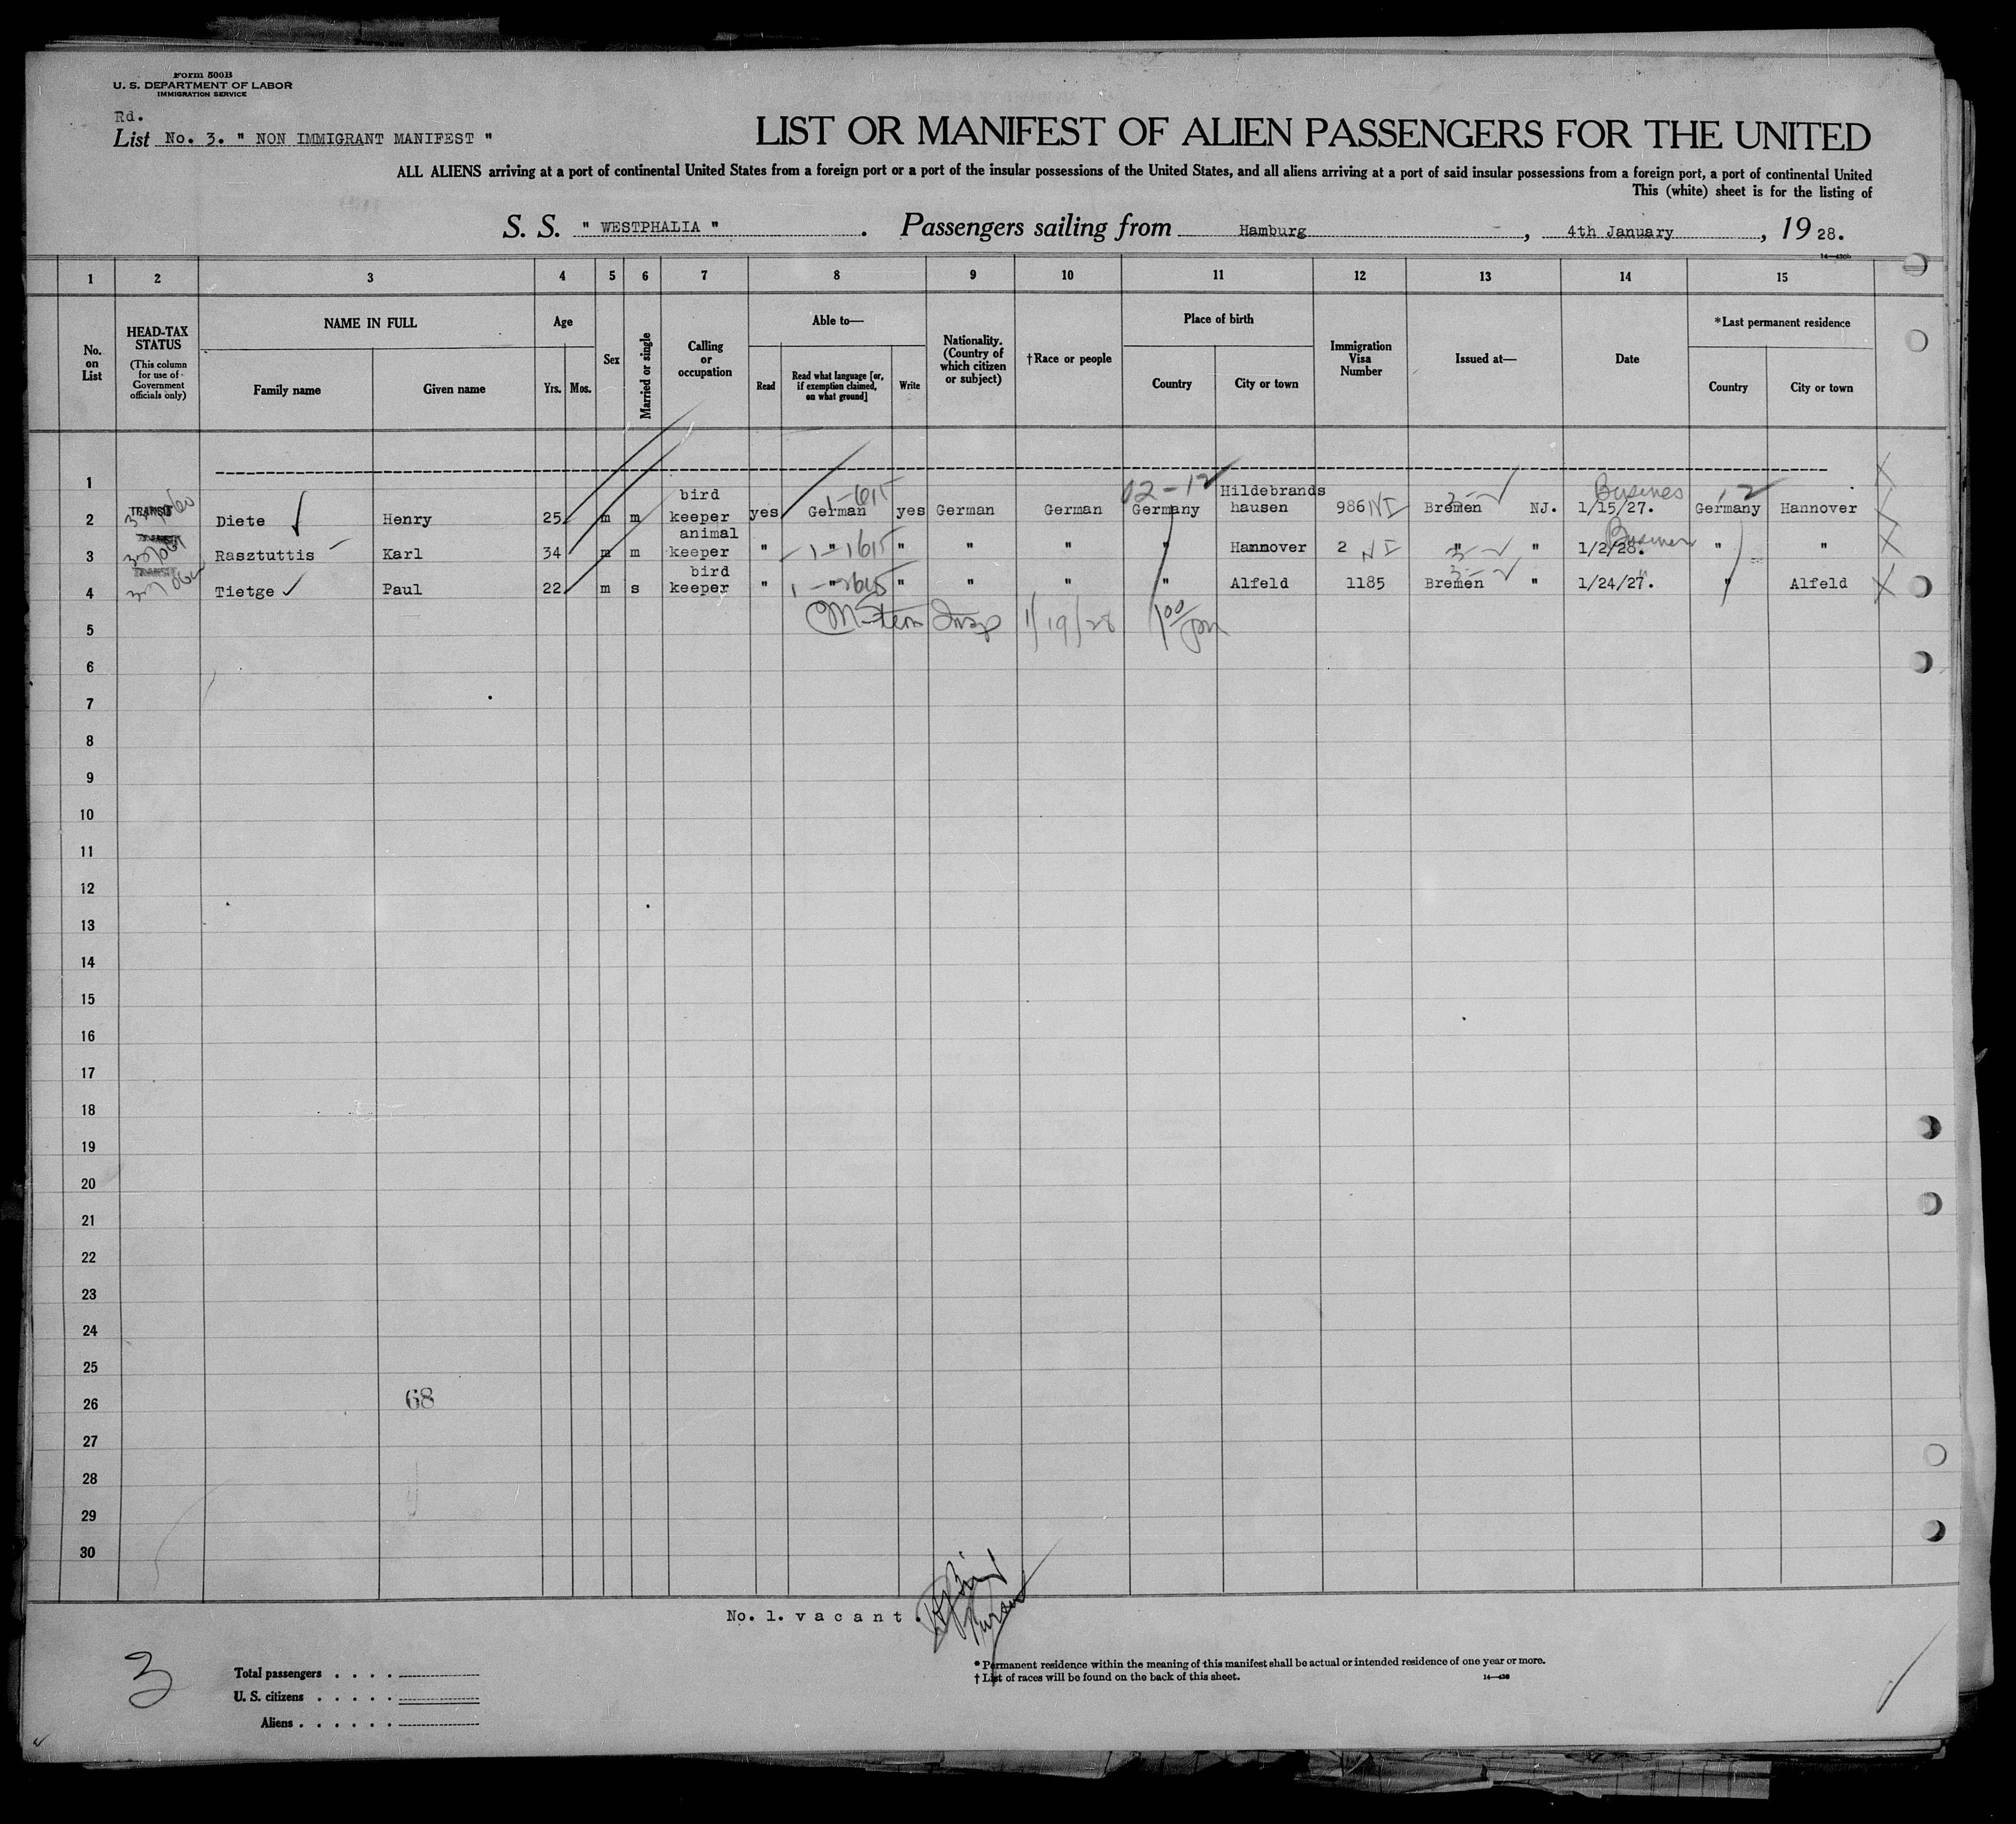 Form 500B
U. S. DEPARTMENT OF LABOR
IMMIGRATION SERVICE
Rd.
List No. 3. " NON IMMIGRANT MANIFEST "
LIST OR MANIFEST OF ALIEN PASSENGERS FOR THE UNITED
ALL ALIENS arriving at a port of continental United States from a foreign port or a port of the insular possessions of the United States, and all aliens arriving at a port of said insular possessions from a foreign port, a port of continental United
This (white) sheet is for the listing of
S. S. " WESTPHALIA ". Passengers sailing from Hamburg, 4th January, 1928.
14—430b
1 2 3 4 5 6 7 8 9 10 11 12 13 14 15
No. on List
HEAD-TAX STATUS (This column for use of Government officials only)
NAME IN FULL
Family name Given name
Age
Yrs. Mos.
Sex
Married or single
Calling or occupation
Able to—
Read
Read what language [or, if exemption claimed, on what ground]
Write
Nationality. (Country of which citizen or subject)
†Race or people
Place of birth
Country City or town
Immigration Visa Number
Issued at—
Date
*Last permanent residence
Country City or town
1
2 TRANSIT Diete Henry 25 m m bird keeper yes German 1-615 yes German German 02-12 Germany Hildebrandshausen 986 NI Bremen NJ. Busines 1/15/27. 12 Germany Hannover
3 Rasztuttis Karl 34 m m animal keeper " " 1-1615 " " " " Hannover 2 NI " " Business 1/2/28. " "
4 Tietge Paul 22 m s bird keeper " " " " " " Alfeld 1185 Bremen " 1/24/27. " Alfeld
5 Insp 1/19/28 1 00/pm
6
7
8
9
10
11
12
13
14
15
16
17
18
19
20
21
22
23
24
25
26 68
27
28
29
30
No. 1. v a c a n t .
3
Total passengers . . . .
U. S. citizens . . . . .
Aliens . . . . . .
* Permanent residence within the meaning of this manifest shall be actual or intended residence of one year or more.
† List of races will be found on the back of this sheet.
14—430